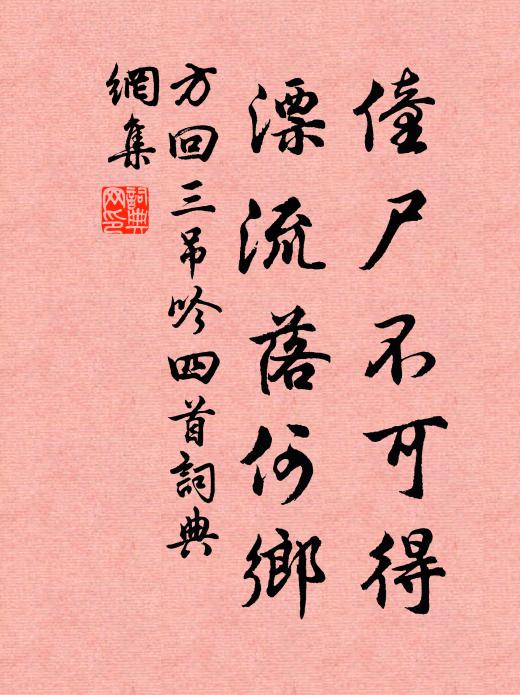 僮尸不可得
漂流落何鄉
方回三吊吟四首詞典
網集
詞典網印